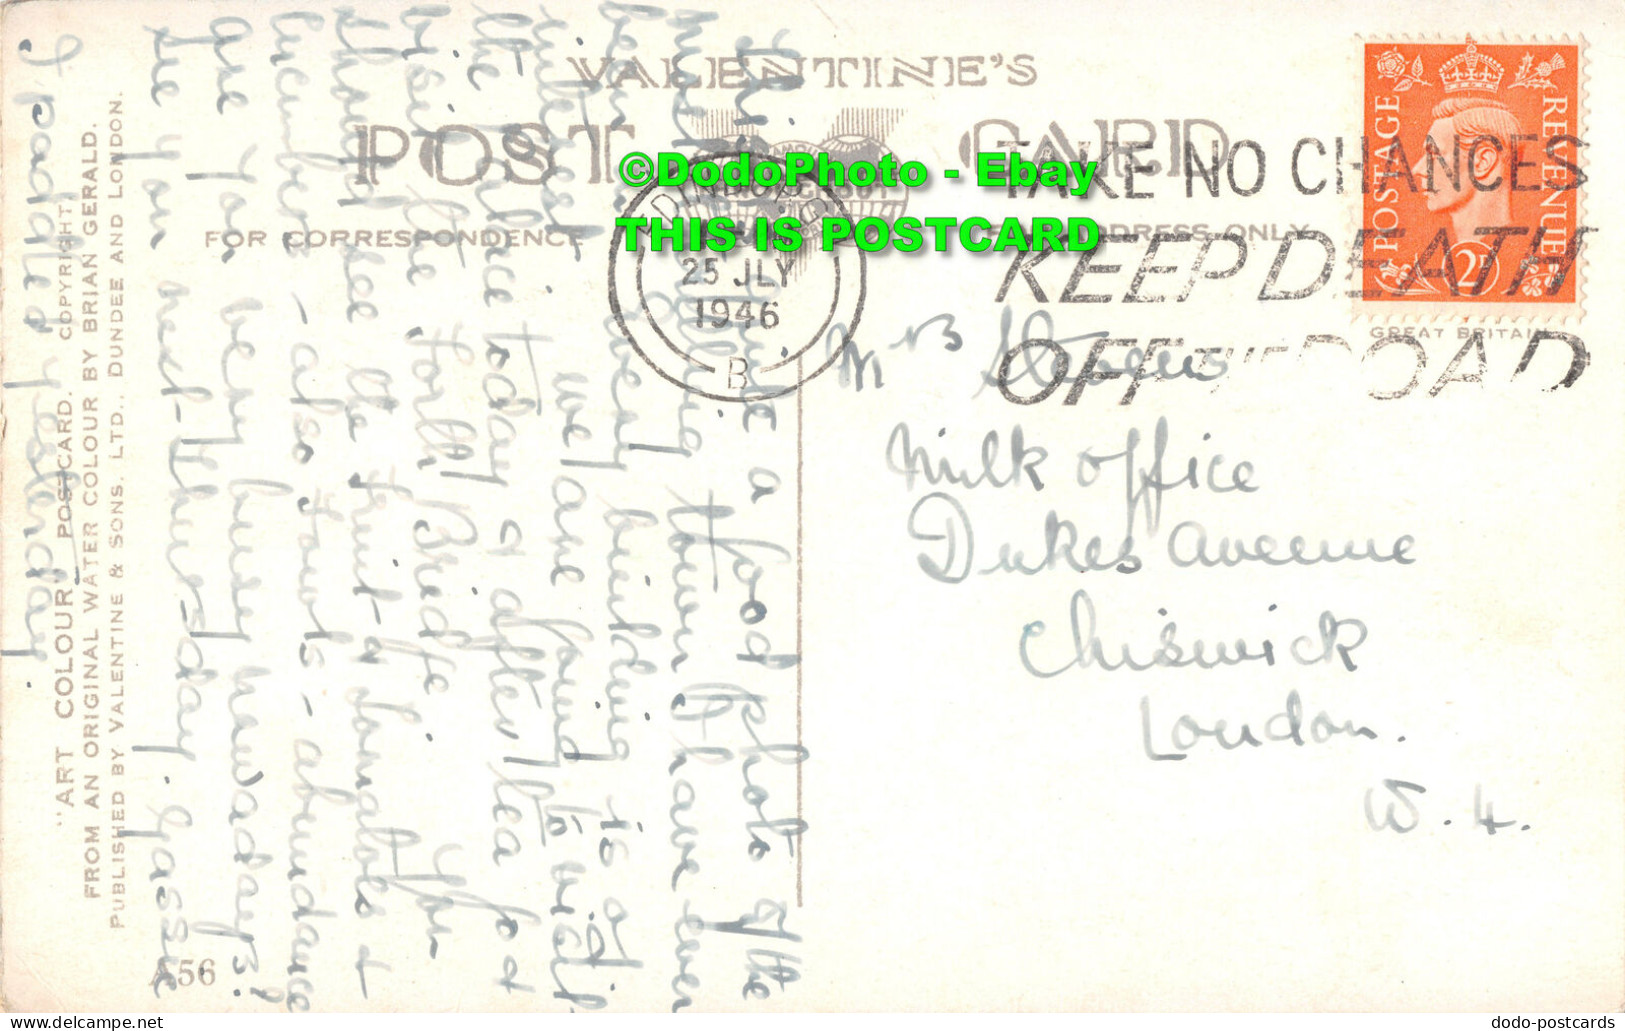 VALENTINE'S
POST CARD
FOR CORRESPONDENCE
ADDRESS ONLY
©DodoPhoto - Ebay
THIS IS POSTCARD
25 JLY
1946
B
TAKE NO CHANCES
KEEP DEATH
OFF THE ROAD
POSTAGE
REVENUE
2D
GREAT BRITAIN
Mrs
Milk Office
Dukes Avenue
Chiswick
London.
W.4.
This is quite a good photo of the
most thrilling town I have ever
been in. Every building is of
interest. We are going to visit
the Palace today & after tea for a
visit Forth Bridge. You
should see the fruit & tomatoes &
cucumbers - also fowls - abundance
are you very busy nowadays?
See you next Thursday. Gassie
I paddled yesterday
"ART COLOUR" POSTCARD. COPYRIGHT.
FROM AN ORIGINAL WATER COLOUR BY BRIAN GERALD.
PUBLISHED BY VALENTINE & SONS. LTD., DUNDEE AND LONDON.
A56
dodo-postcards